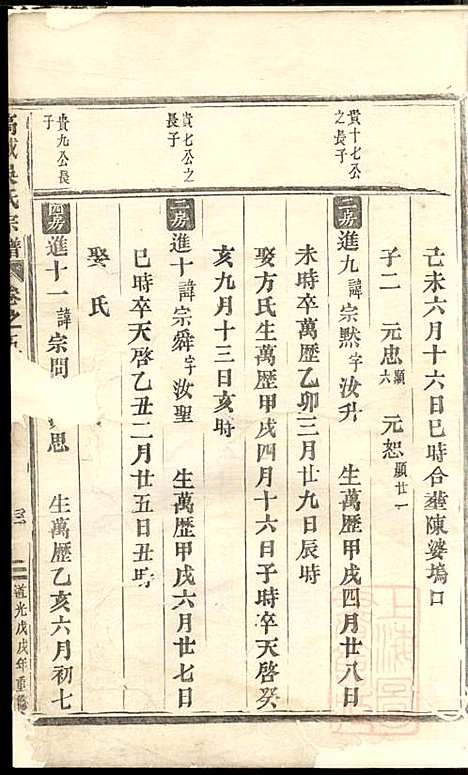 己未六月十六日巳時合塟陳婆塢口
子二　元忠顯六　元恕顯廿一
貴十七公之長子
二房進九諱宗黙字汝升　生萬歷甲戌四月廿八日
未時卒萬歷乙卯三月廿九日辰時
娶方氏生萬歷甲戌四月十六日子時卒天啓癸
亥九月十三日亥時
貴七公之長子
二房進十諱宗舜字汝聖　生萬歷甲戌六月廿七日
巳時卒天啓乙丑二月廿五日丑時
娶　氏
貴九公長子
四房進十一諱宗問　思　生萬歷乙亥六月初七
吳氏宗譜　卷之　三　道光戊戌年重
上海圖